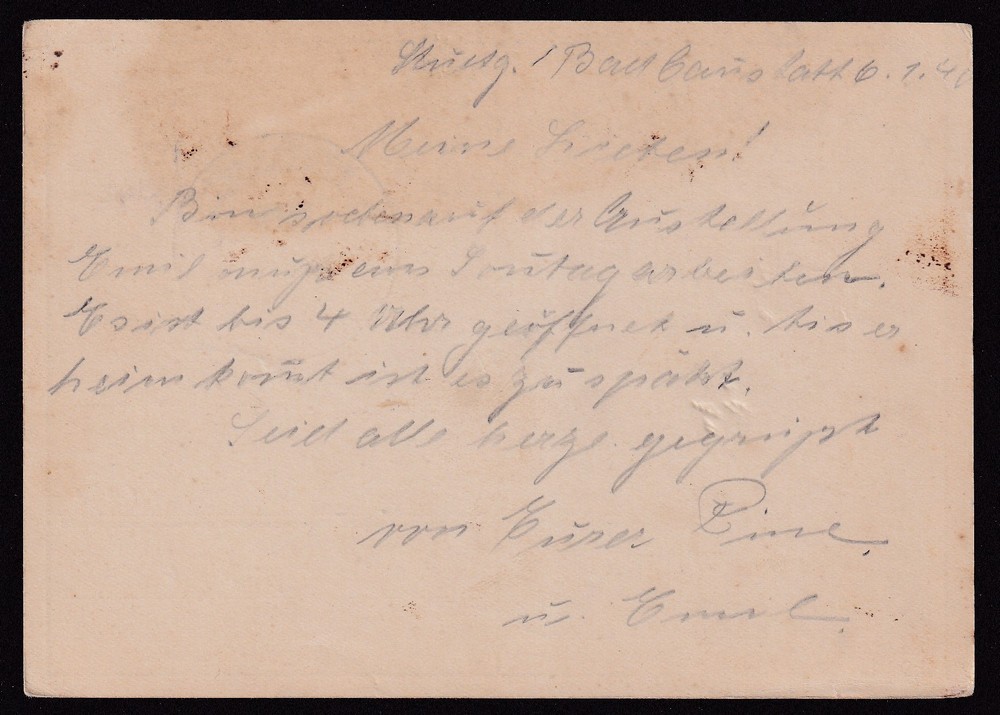 Stuttg. / Bad Canstatt 6. 1. 40
Meine Lieben!
Bin soeben auf der Austellung
Emil muß am Sontag arbeiten.
Es ist bis 4 Uhr geöffnet u. bis er
heim komt ist es zu spät.
Seid alle herzl. gegrüßt
von Eurer Pine
u. Emil.